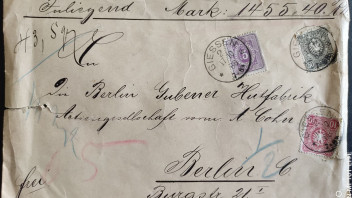 Inliegend Mark: 1455.40.
43, 5 gr
An
GIESSEN
Die Berlin Gubener Hutfabrik
Actiengesellschaft vorm A Cohn
Berlin C.
frei
Burgstr. 21